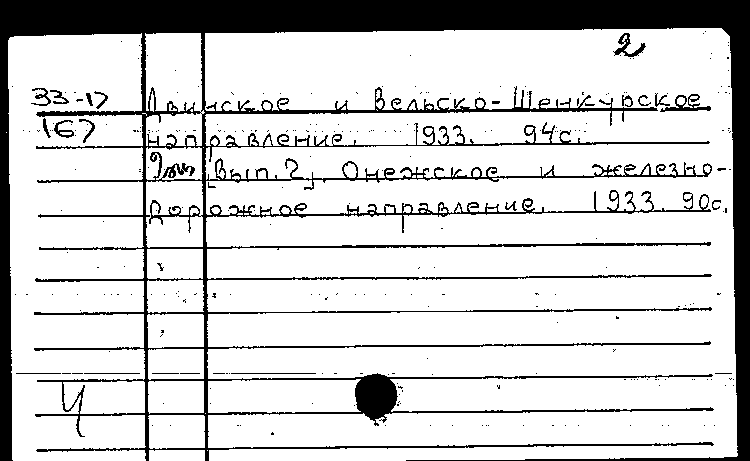 2
33-17 Двинское и Вельско-Шенкурское
167 направление. 1933. 94с.
[Вып. 2]. Онежское и железно-
дорожное направление. 1933. 90с.
Ч